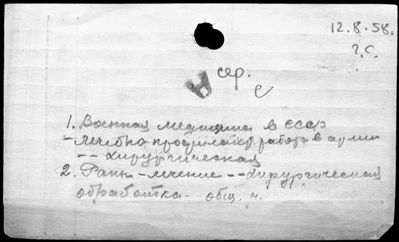 12.8.58.
г.с.
сер.
с
1. Военная медицина в СССР
- лечебно профилакт. работа в армии
-- хирургическая
2. Раны - лечение -- хирургическая
обработка - общ. ч.